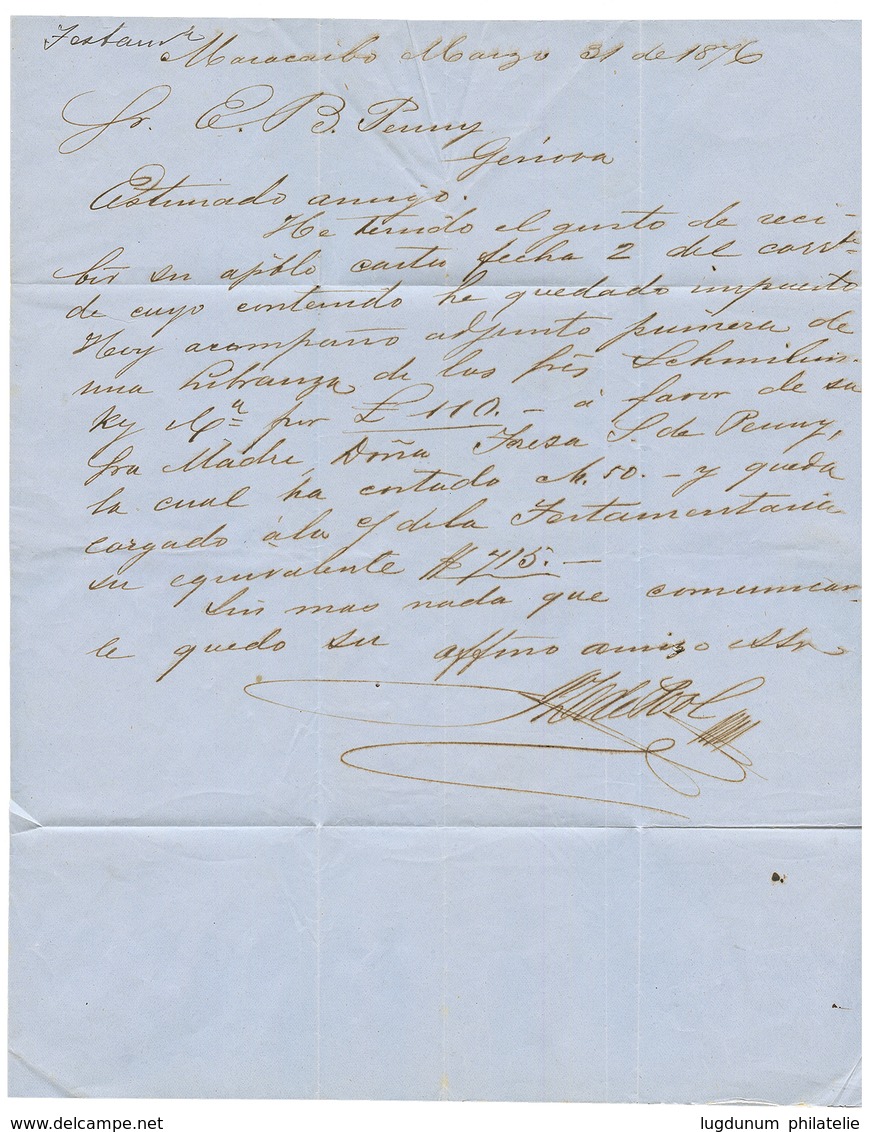 Testamª
Maracaibo Marzo 31 de 1876
Sr. E. B. Penny
Génova
Estimado amigo.
He tenido el gusto de reci-
bir su apblo carta fecha 2 del corrte
de cuyo contenido he quedado impuesto
Hoy acompaño adjunto primera de
una Libranza de los Srēs Schmilin-
ky por £ 110.- á favor de su
Sra Madre, Doña Teresa S. de Penny,
la cual ha costado 50.- y queda
cargado á la c/ de la Testamentaria
su equivalente $ 715.-
Sin mas nada que comunicar
le quedo su affmo amigo SSr
www.delcampe.net
lugdunum philatelie